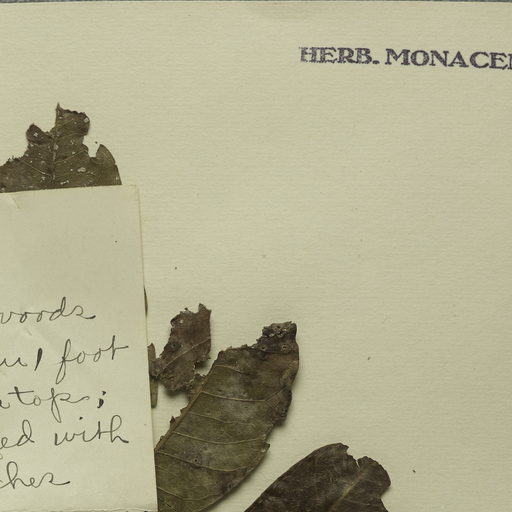 HERB. MONACE
woods
1 foot
top;
ged with
ches